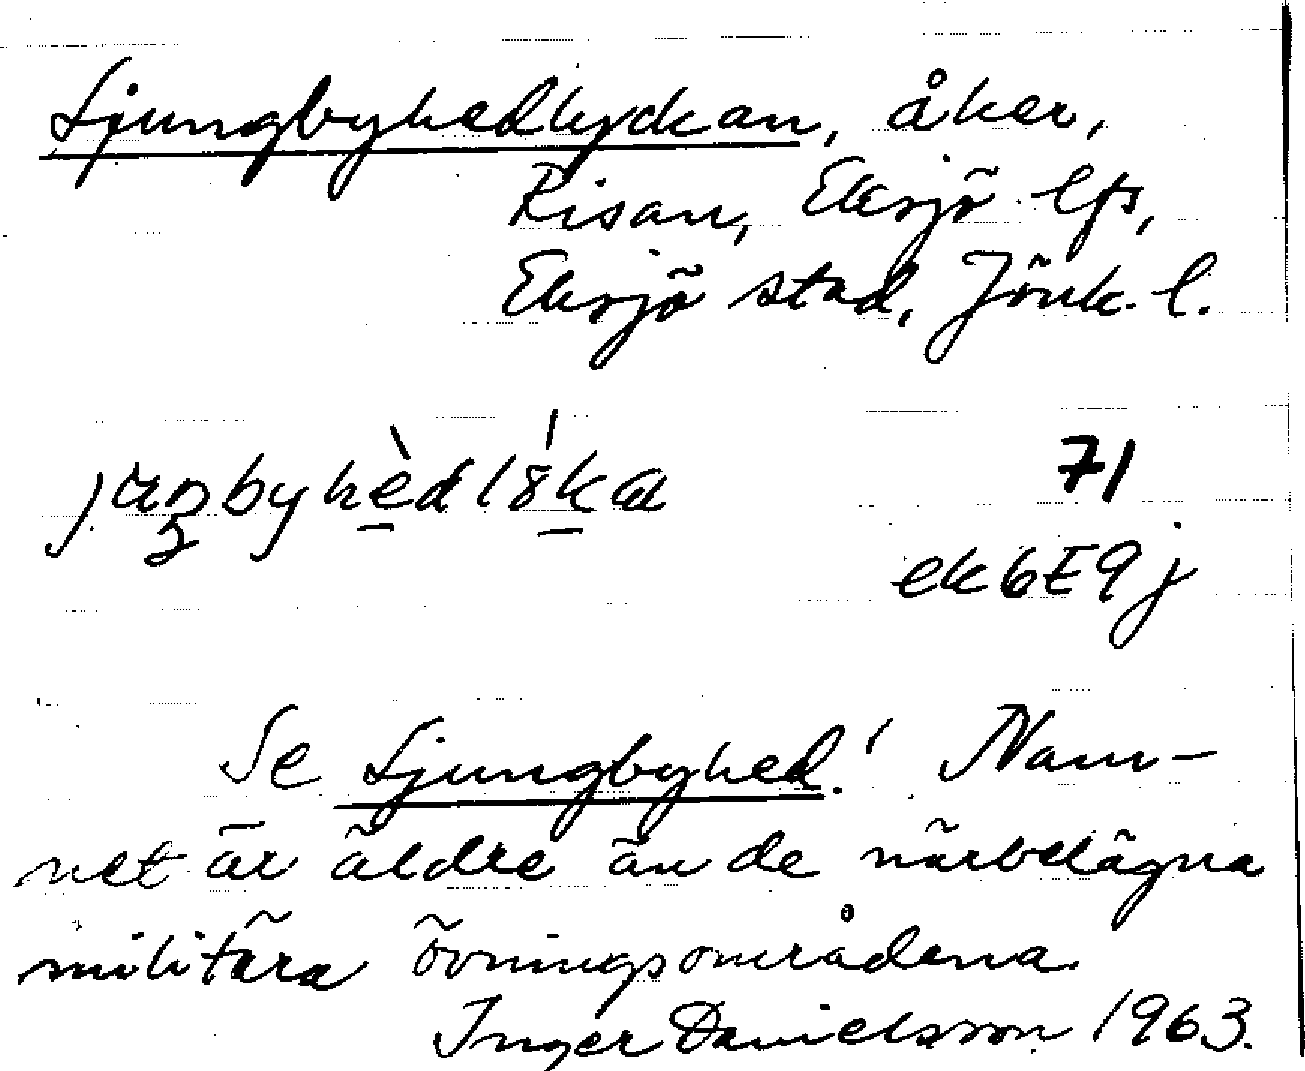 Ljungbyhedlyckan, åker,
Risan, Eksjö lfs,
Eksjö stad, Jönk. l.
71
ek6E9j
Se Ljungbyhed! Nam-
net är äldre än de närbelägna
militära övningsområdena.
Inger Danielsson 1963.